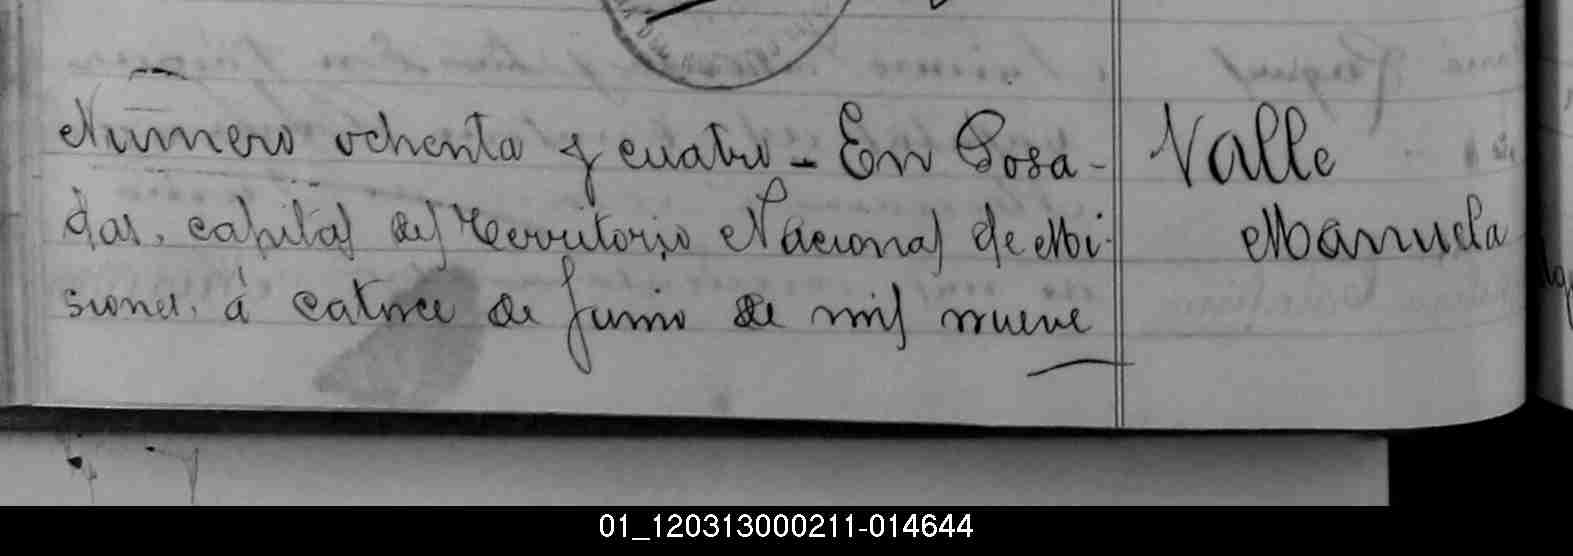 Número ochenta y cuatro - En Posa-
das, capital del Territorio Nacional de Mi-
siones, á catorce de Junio de mil nueve
Valle
Manuela
01_120313000211-014644